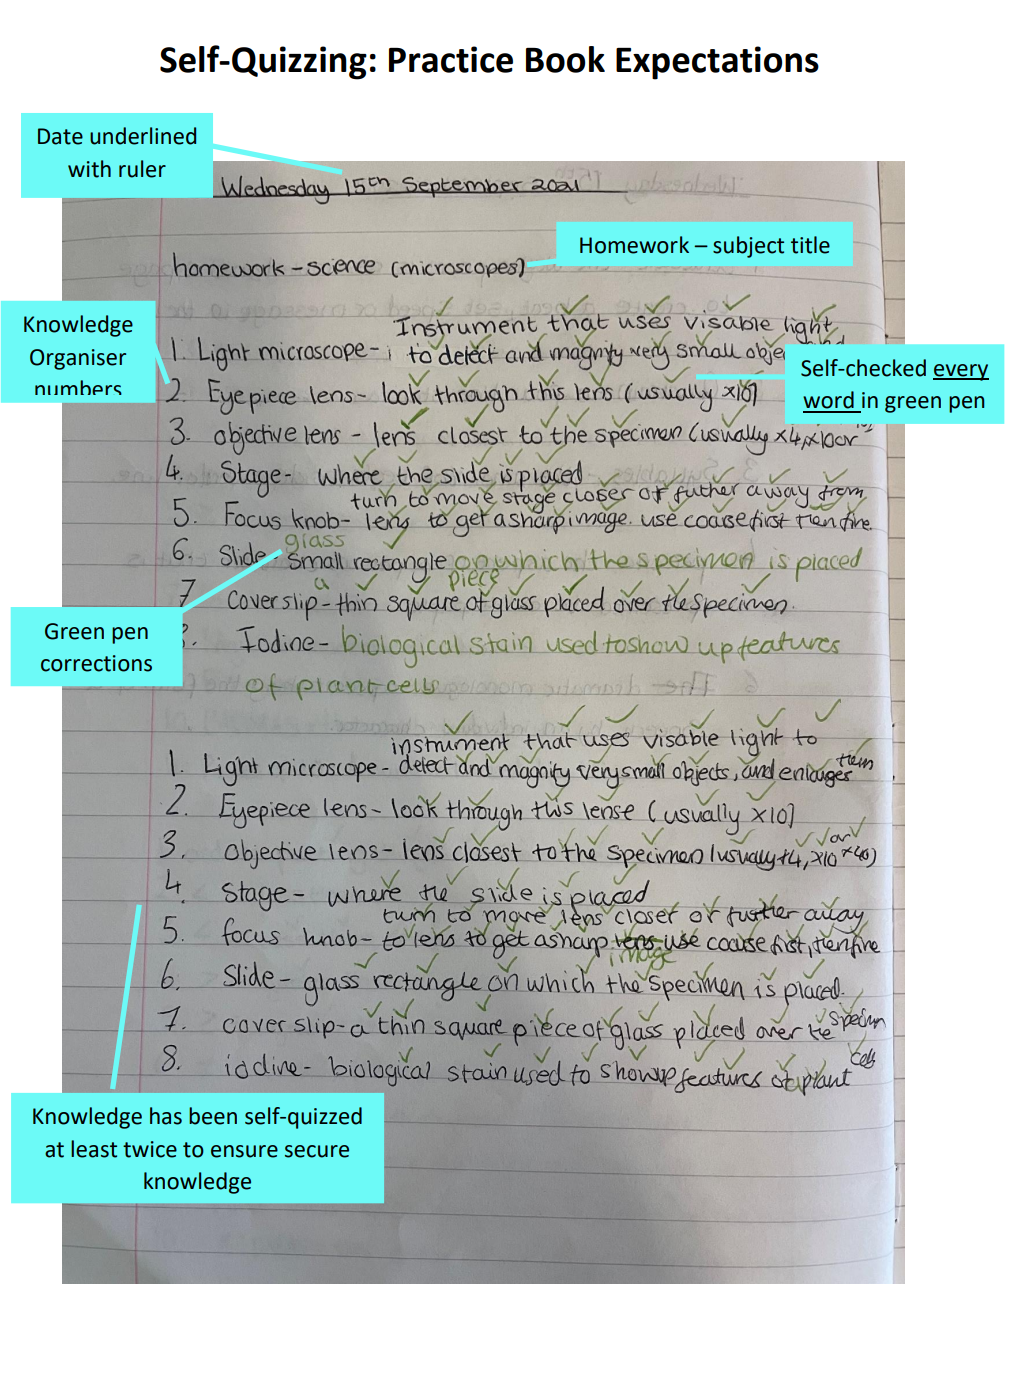 Self-Quizzing: Practice Book Expectations
Date underlined
with ruler
Wednesday 15th September 2021
Homework – subject title
homework - science (microscopes)
Knowledge
Organiser
numbers
Instrument that uses visable light
1. Light microscope - to detect and magnify very small
Self-checked every
word in green pen
2. Eyepiece lens - look through this lens (usually x10)
3. objective lens - lens closest to the specimen (usually x4, x10 or
4. Stage - where the slide is placed
turn to move stage closer or futher away from
5. Focus knob - lens to get a sharp image. use coarse first then fine.
glass
6. Slide - small rectangle on which the specimen is placed
a piece
7 Coverslip - thin square of glass placed over the specimen.
Green pen
corrections
Iodine - biological stain used to show up features
of plant cells
instrument that uses visable light to
1. Light microscope - detect and magnify very small objects, and enlarges them
2. Eyepiece lens - look through this lense (usually x10)
3. objective lens - lens closest to the specimen (usually x4, x10 or x40)
4. Stage - where the slide is placed
turn to move lens closer or further away
5. focus knob - to lens to get a sharp lens use coarse first, then fine
image
6. Slide - glass rectangle on which the specimen is placed.
7. cover slip - a thin square piece of glass placed over the
8. iodine - biological stain used to show up features of plant cells
Knowledge has been self-quizzed
at least twice to ensure secure
knowledge